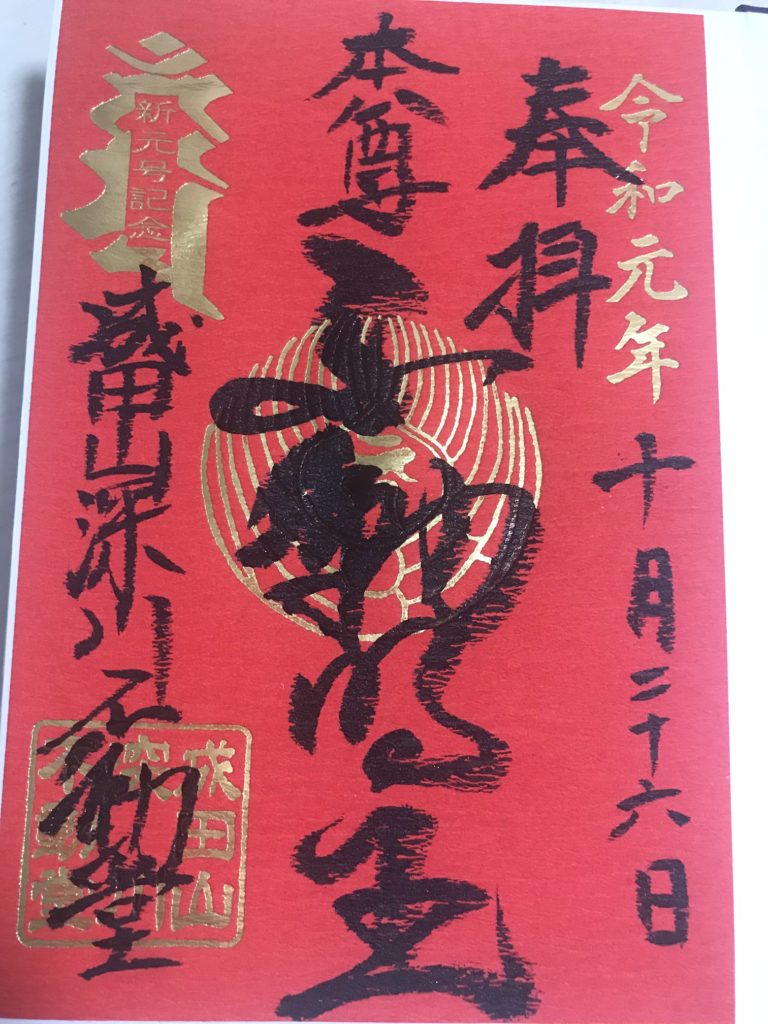 令和元年十月二十六日
奉拝
本尊不動明王
新元号記念
成田山深川不動堂
成田山
深川
不動堂